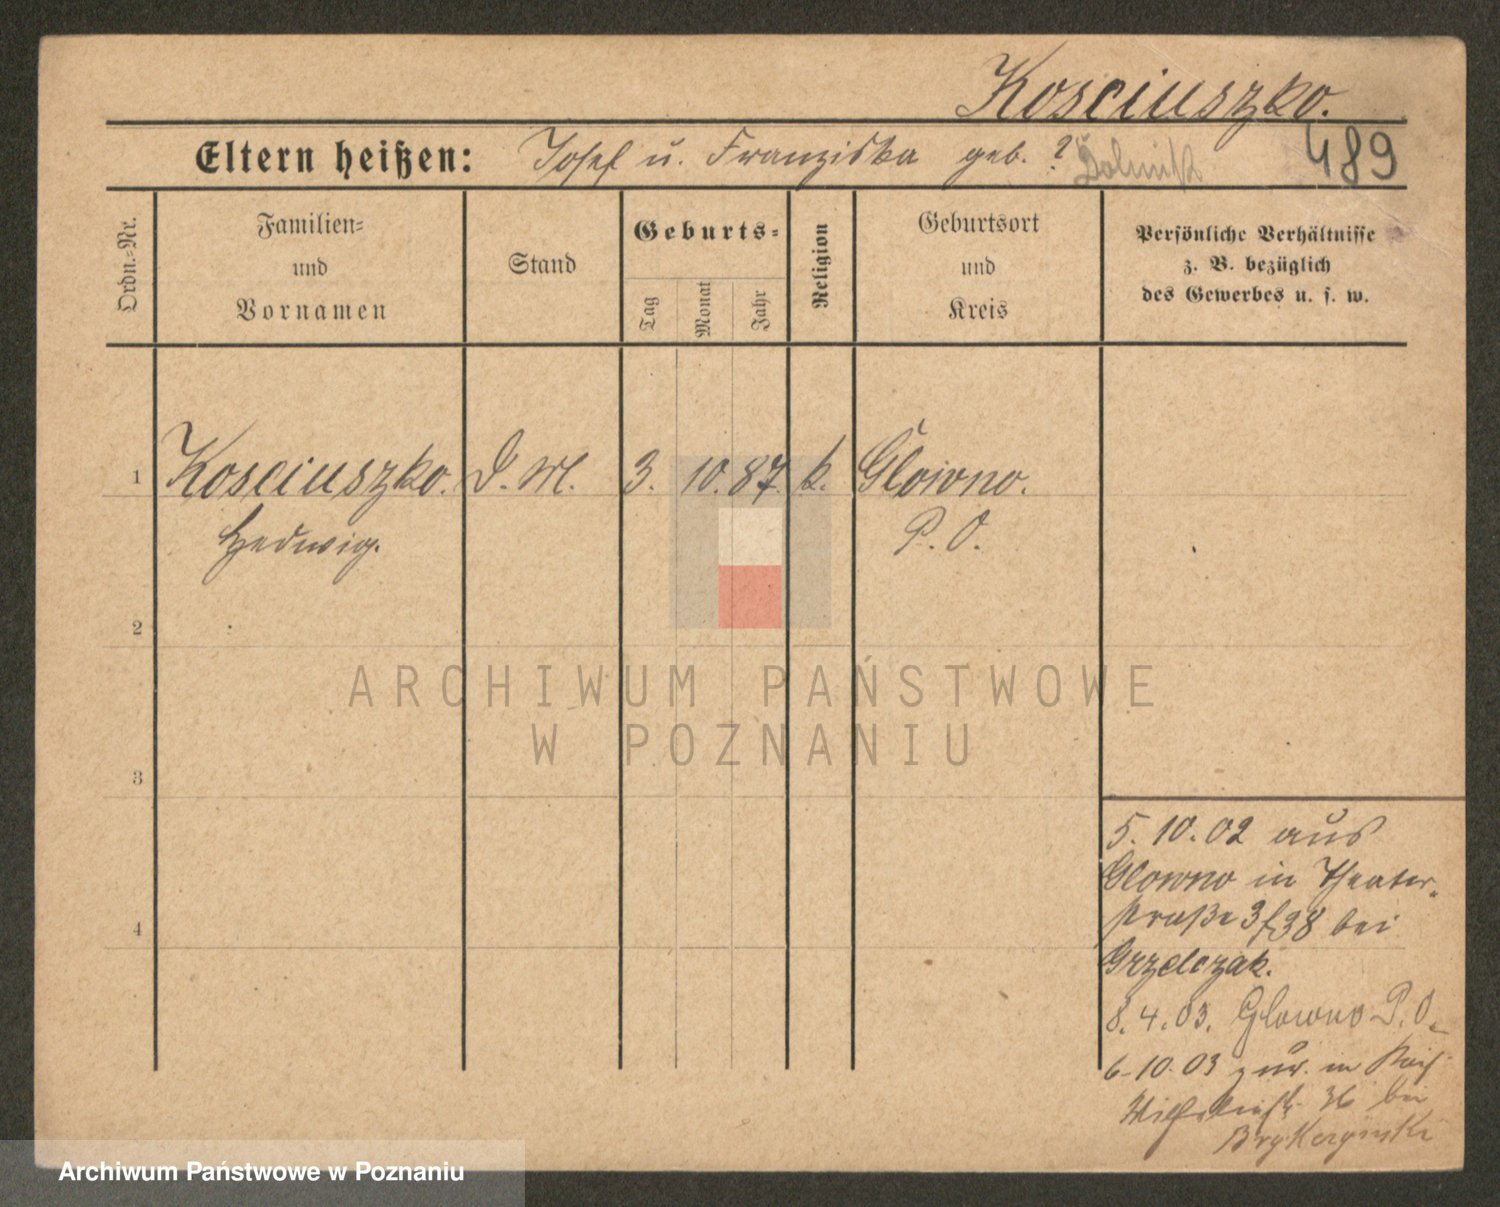 Kosciuszko.
Eltern heißen: Josef u. Franziska geb. ? Dolnick
489
Ordn.-Nr.
Familien-
und
Vornamen
Stand
Geburts-
Tag
Monat
Jahr
Religion
Geburtsort
und
Kreis
Persönliche Verhältnisse
z. B. bezüglich
des Gewerbes u. s. w.
1 Kosciuszko. D. M. 3. 10. 87. k. Glowno.
Hedwig. P. O.
2
ARCHIWUM PAŃSTWOWE
W POZNANIU
3
5. 10. 02 aus
Glowno in Theater-
straße 3 f 38 bei
4
Grzelczak.
8. 4. 03. Glowno P. O.
6. 10. 03 zur. in
36 bei
Archiwum Państwowe w Poznaniu